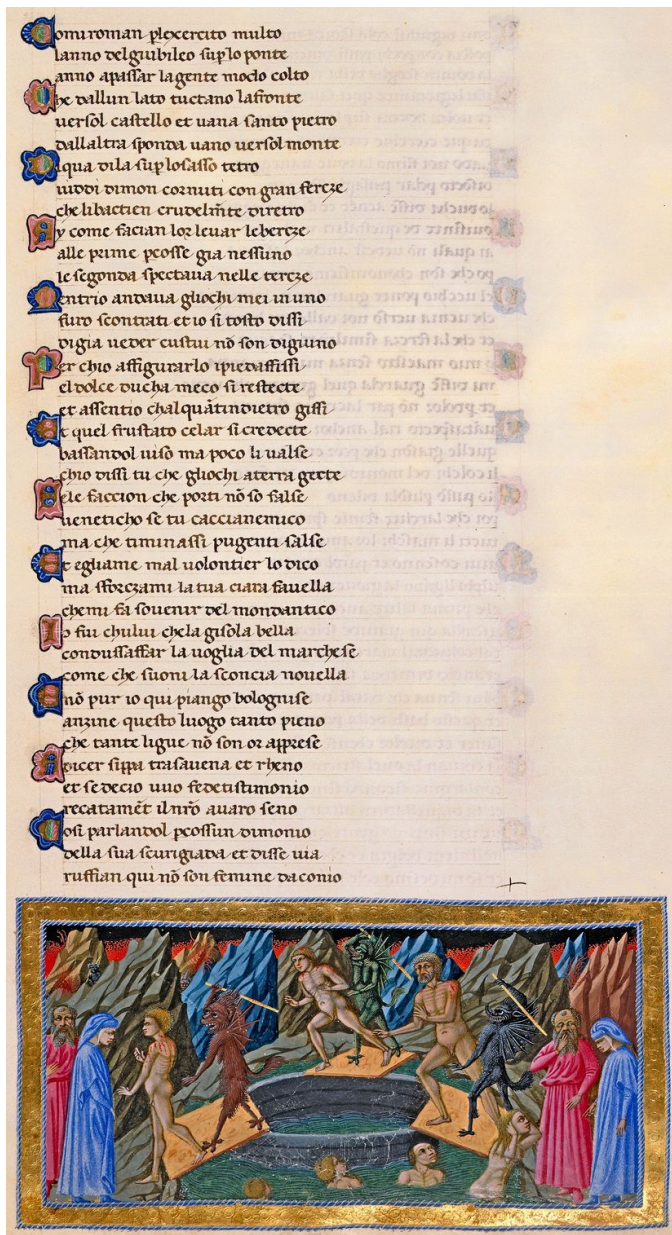 Comi roman plexercito multo
lanno delgiubileo suplo ponte
anno apassar lagente modo colto
Che dallun lato tuctano lafronte
versol castello et vana santo pietro
dallaltra sponda vano versol monte
Diqua dila suplosasso tetro
viddi dimon cornuti con gran ferze
che libactien crudelmte diretro
Ay come facian lor leuar leberze
alle prime pcosse gia nessuno
le segonda spectaua nelle terze
Mentrio andaua gliochi mei in uno
furo scontrati et io si tosto dissi
digia ueder custui nō son digiuno
Per chio affigurarlo ipiedaffissi
el dolce ducha meco si restecte
et assentio chalquātindietro gissi
Et quel frustato celar si credecte
bassandol uiso ma poco li ualse
chio dissi tu che gliochi aterra gecte
Sele faccion che porti nō so false
ueneticho se tu caccianemico
ma che timinassi pugenti salse
Et egliame mal volontier lo dico
ma sforczami la tua ciara fauella
chemi fa souenir del mondantico
Io fui chului chela gisola bella
condussaffar la voglia del marchese
come che suoni la sconcia nouella
Enō pur io qui piango bolognise
anzine questo luogo tanto pieno
che tante ligue nō son or apprese
Adicer sippa trasauena et rheno
et sedecio vuo fedetistimonio
recatamēt ilnr̄o auaro seno
Cosi parlandol pcossiun dimonio
della sua scurigiada et disse via
ruffian qui nō son femine da conio